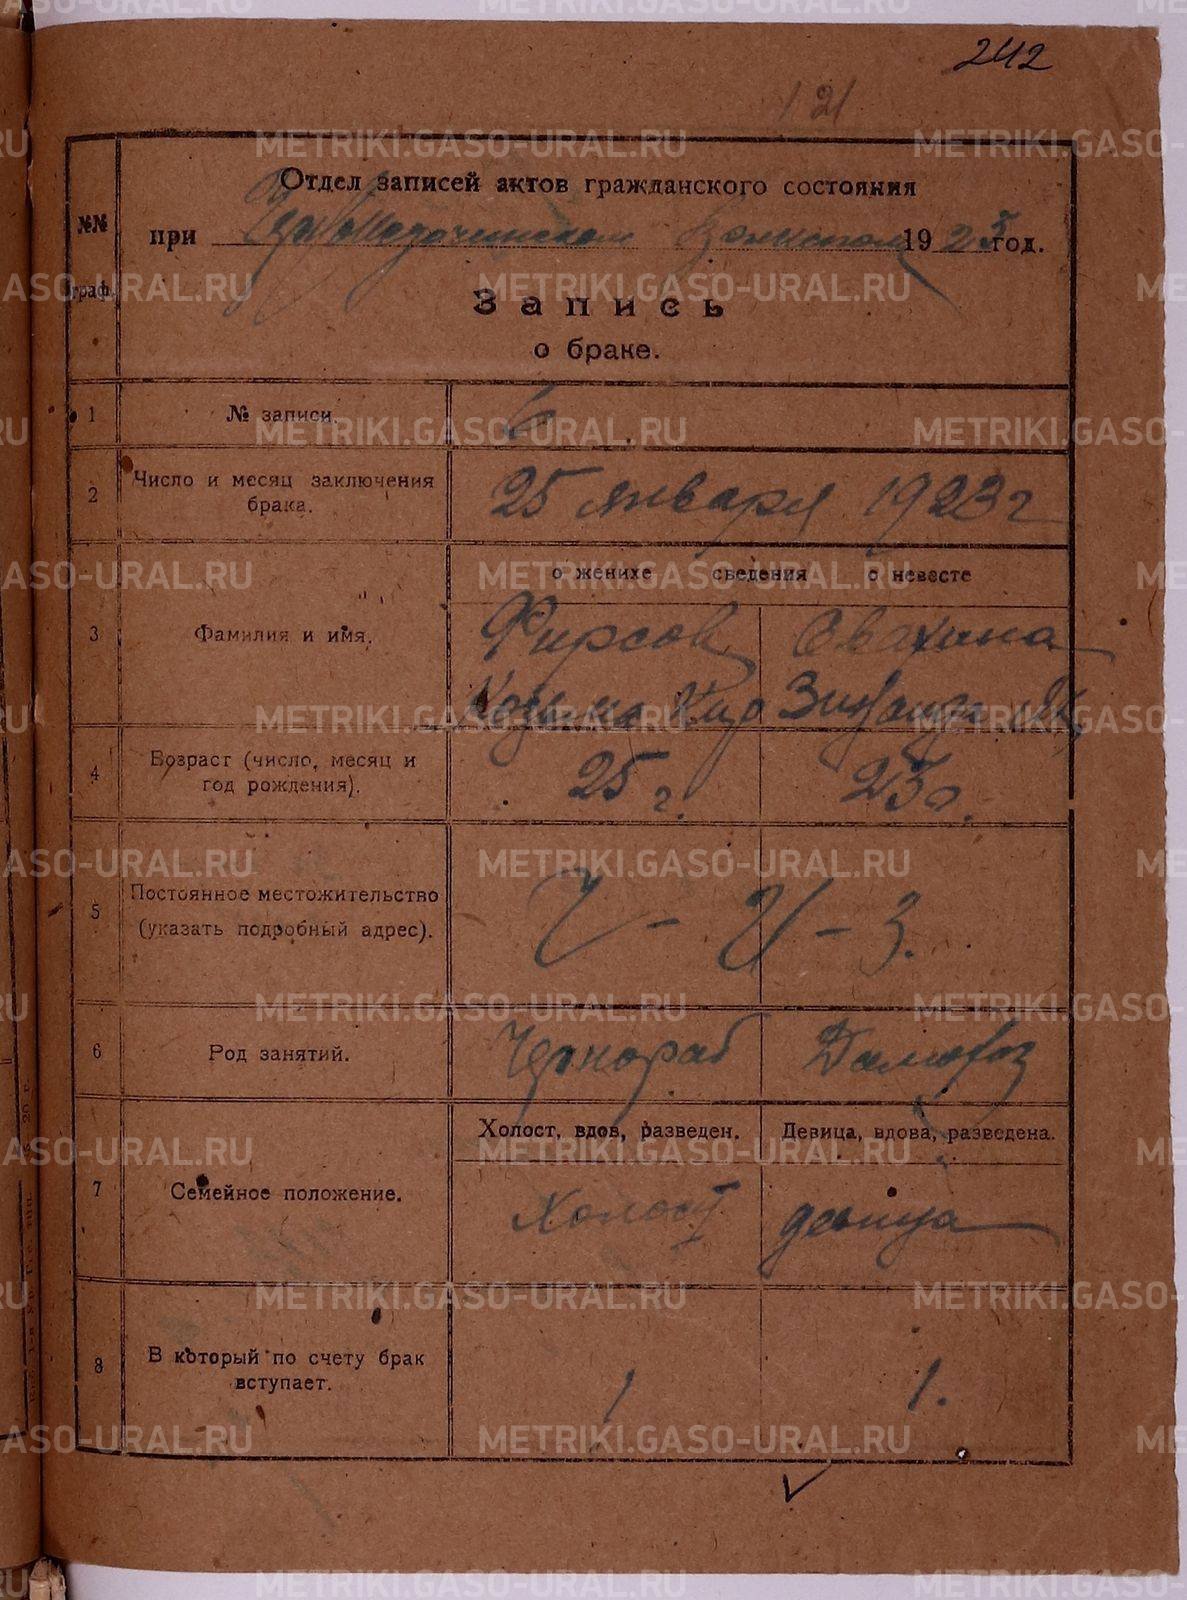 242
121
№№
граф.
Отдел записей актов гражданского состояния
при 1923 год.
Запись
о браке.
1 № записи. 6
2 Число и месяц заключения брака. 25 января 1923 г
о женихе сведения о невесте
3 Фамилия и имя.
Фирсов
Козьма Кир Зинаида
4 Возраст (число, месяц и год рождения).
25 г. 23 г.
5 Постоянное местожительство
(указать подробный адрес).
Ч - И - З.
6 Род занятий. Чернораб Домохоз
Холост, вдов, разведен. Девица, вдова, разведена.
7 Семейное положение.
Холост девица
8 В который по счету брак вступает.
1 1.
METRIKI.GASO-URAL.RU